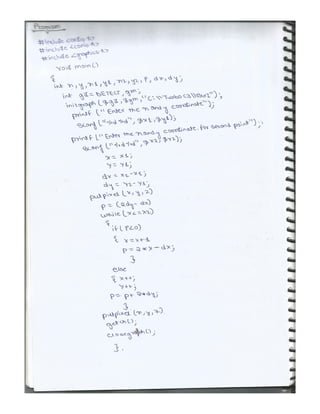 Program
#include <conio.h>
#include <graphics.h>
void main()
{
int x, y, x1, y1, x2, y2, p, dx, dy;
int gd = DETECT, gm;
initgraph (&gd, &gm, "C:\\Turbo C3\\BGI");
printf ("Enter the x and y coordinate");
scanf ("%d %d", &x1, &y1);
printf ("Enter the x and y coordinate for second point");
scanf ("%d %d", &x2, &y2);
x = x1;
y = y1;
dx = x2-x1;
dy = y2-y1;
putpixel (x, y, 2)
p = (2dy - dx)
while (x<=x2)
{
if (p<0)
{ x = x+1
p = 2*x - dx;
}
else
{ x++;
y++;
p = p + 2*dy;
}
putpixel (x, y, 2)
getch();
closegraph();
}.